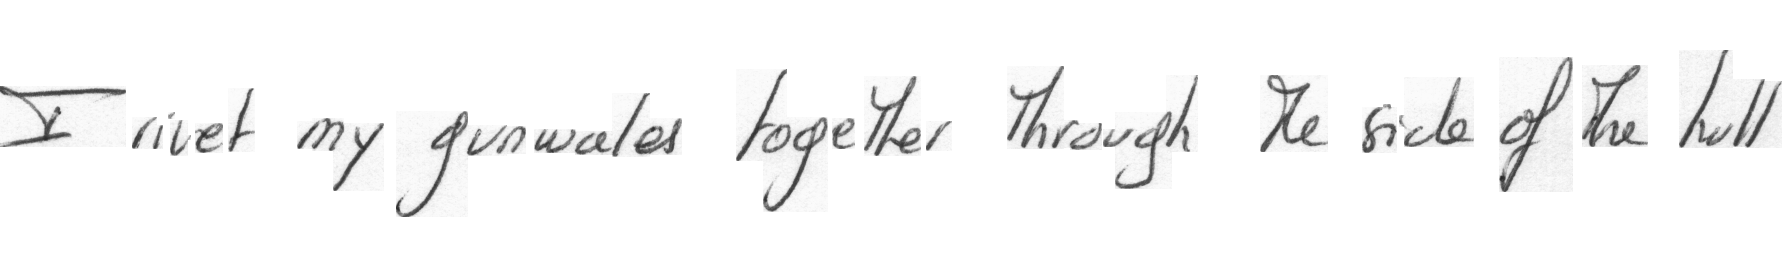 I rivet my gunwales together through the side of the hull